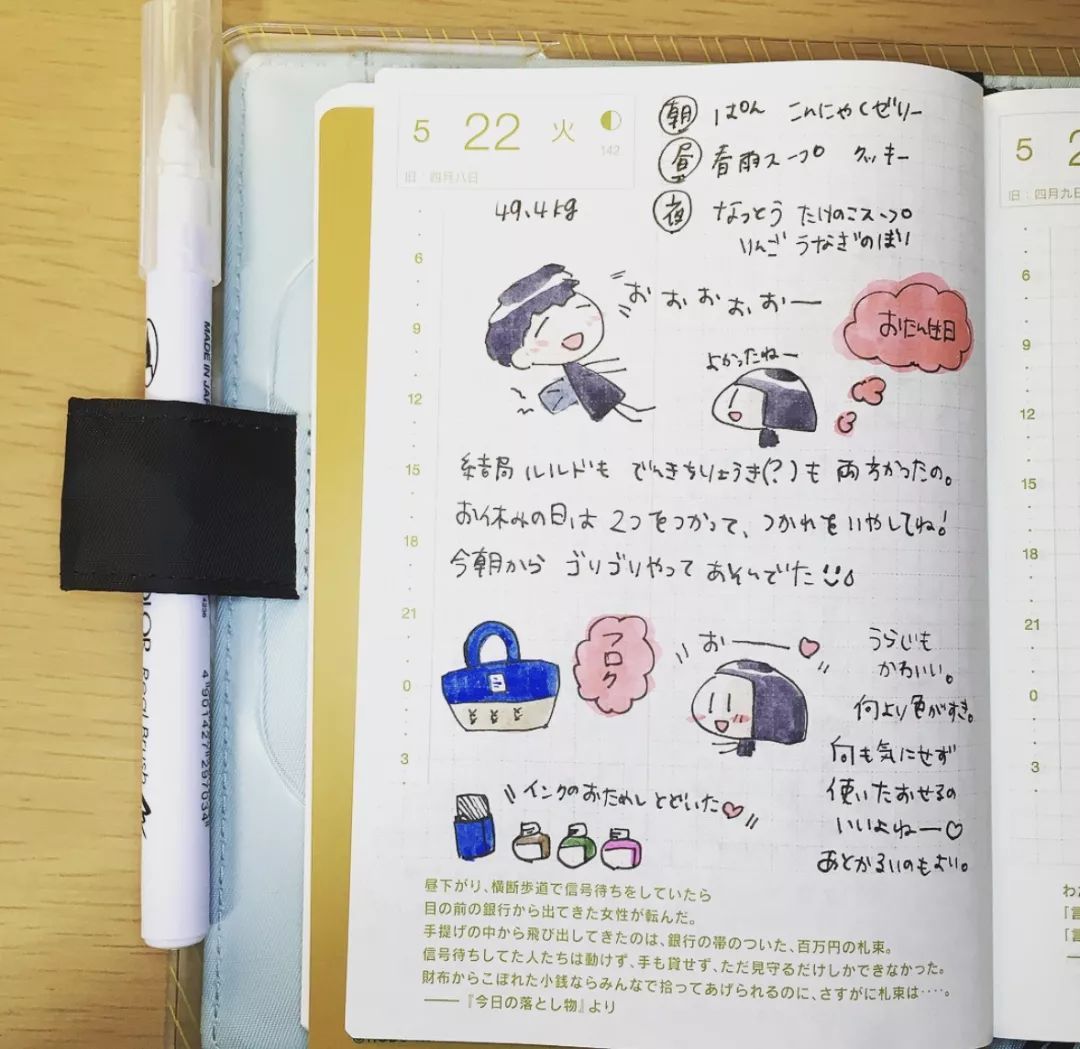 5 22 火
142
旧：四月八日
朝 ぱん こんにゃくゼリー
昼 春雨スープ クッキー
夜 なっとう たけのこスープ
りんご うなぎのぼり
49.4kg
おぉおぉおー
おたん生日
よかったねー
結局 ルルドも でんきちりょうき(?)も 両方かったの。
お休みの日は 2つをつかって、つかれをいやしてね!
今朝から ゴリゴリやって あそんでた
フロク
おー
うらじも
かわいい。
何より色がすき。
何も気にせず
使いたおせるの
いいよねー
あとかるいのもよい。
インクのおためし とどいた
6
9
12
15
18
21
0
3
昼下がり、横断歩道で信号待ちをしていたら
目の前の銀行から出てきた女性が転んだ。
手提げの中から飛び出してきたのは、銀行の帯のついた、百万円の札束。
信号待ちしてた人たちは動けず、手も貸せず、ただ見守るだけしかできなかった。
財布からこぼれた小銭ならみんなで拾ってあげられるのに、さすがに札束は‥‥。
――『今日の落とし物』より
5 2
旧：四月九日
6
9
12
15
18
21
0
3
わた
『言
「言
MADE IN JAP
4 901427 297034